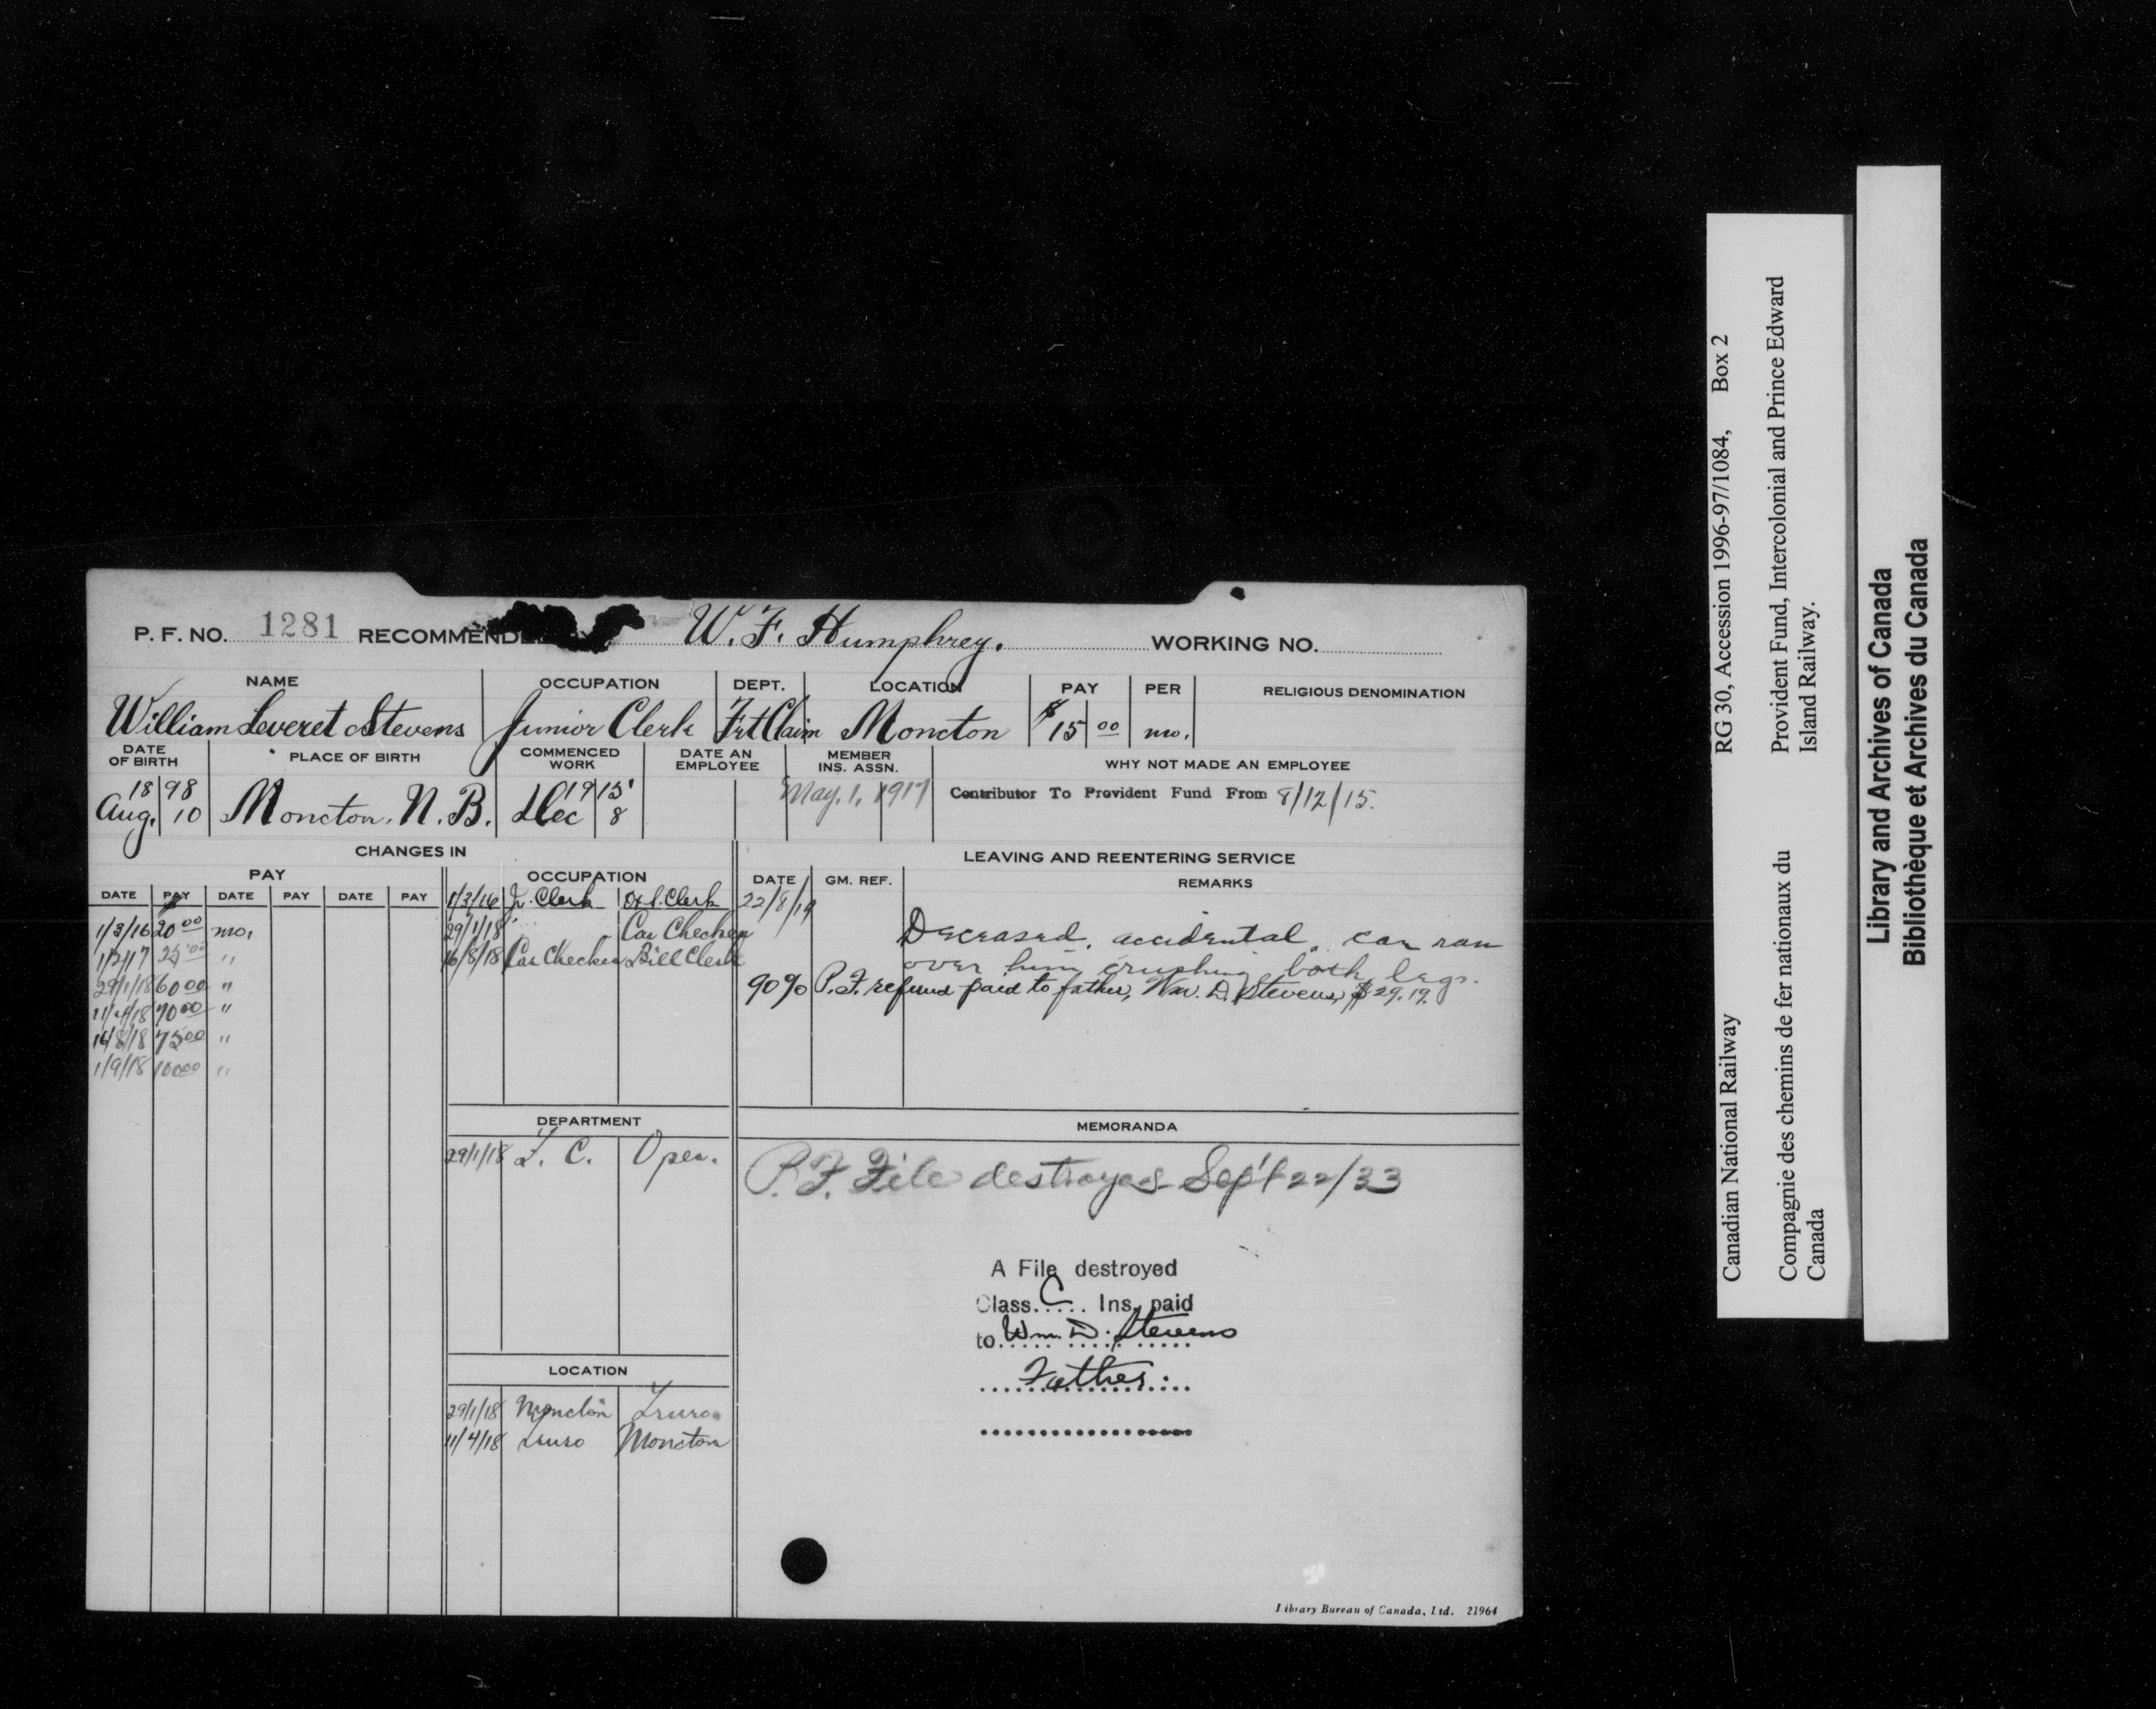 P. F. NO. 1281 RECOMMENDED W. F. Humphrey. WORKING NO.
NAME OCCUPATION DEPT. LOCATION PAY PER RELIGIOUS DENOMINATION
William Leveret Stevens Junior Clerk Frt Claim Moncton $15 00 mo.
DATE OF BIRTH PLACE OF BIRTH COMMENCED WORK DATE AN EMPLOYEE MEMBER INS. ASSN. WHY NOT MADE AN EMPLOYEE
1898 Aug. 10 Moncton, N. B. 1915 Dec 8 May. 1, 1917 Contributor To Provident Fund From 8/12/15.
CHANGES IN
PAY
DATE PAY DATE PAY DATE PAY
1/3/16 20 00 mo,
1/2/17 25 00 "
29/1/18 60 00 "
11/4/18 70 00 "
16/8/18 75 00 "
1/9/18 100 00 "
OCCUPATION
1/3/16 Jr. Clerk Clerk
29/1/18 Car Checker
16/8/18 Car Checker Bill Clerk
DEPARTMENT
29/1/18 F. C. Oper.
LOCATION
29/1/18 Moncton Truro
11/4/18 Truro Moncton
LEAVING AND REENTERING SERVICE
DATE GM. REF. REMARKS
22/8/19
Deceased, accidental, car ran
over him crushing both legs.
90% P.F. refund paid to father, Wm. D. Stevens, $29.19.
MEMORANDA
P.F. File destroyed Sep't 22/33
A File destroyed
Class. C .. Ins. paid
to Wm. D. Stevens
Father.
Library Bureau of Canada, Ltd. 21964
Canadian National Railway RG 30, Accession 1996-97/1084, Box 2
Compagnie des chemins de fer nationaux du Provident Fund, Intercolonial and Prince Edward
Canada Island Railway.
Library and Archives of Canada
Bibliothèque et Archives du Canada